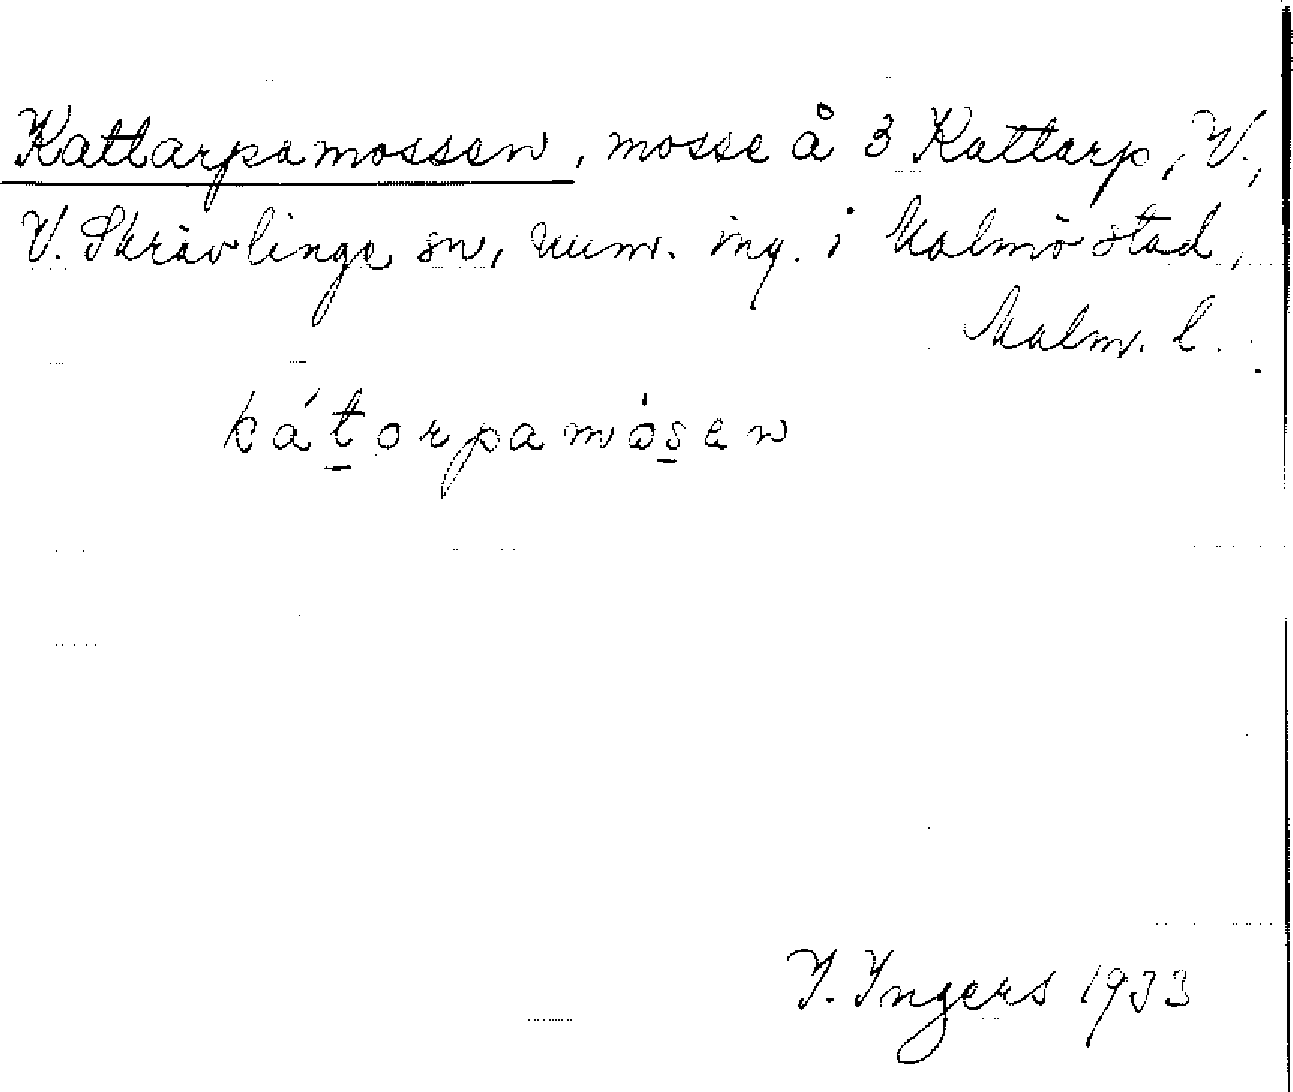 Kattarpamossen, mosse å 3 Kattarp, V.,
V. Skrävlinge sn, num. ing. i Malmö stad,
Malm. l.
kátorpamósen
I. Ingers 1933